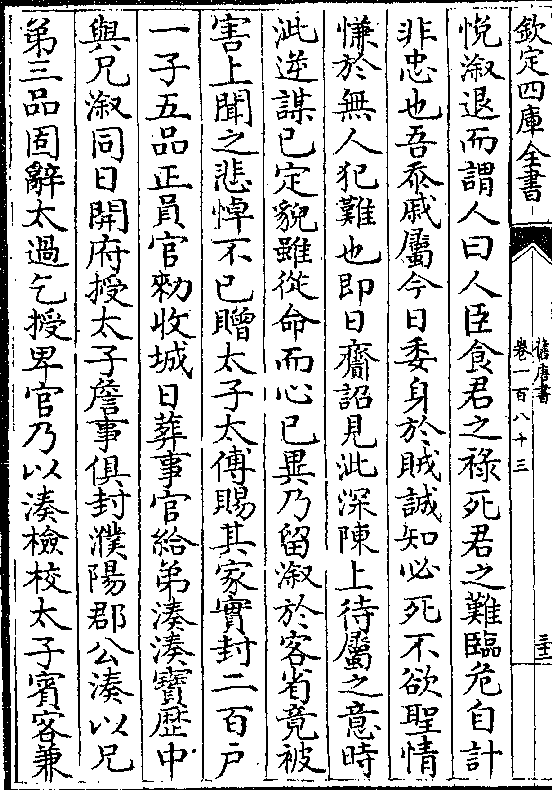 欽定四庫全書
舊唐書
卷一百八十三
三十二
悅溆退而謂人曰人臣食君之禄死君之難臨危自計
非忠也吾忝戚屬今日委身於賊誠知必死不欲聖情
慊於無人犯難也即日齎詔見泚深陳上待屬之意時
泚逆謀已定貌雖從命而心已異乃留溆於客省竟被
害上聞之悲悼不已贈太子太傅賜其家實封二百户
一子五品正員官勑收城日葬事官給弟湊湊寶歷中
與兄溆同日開府授太子詹事俱封濮陽郡公湊以兄
弟三品固辭太過乞授卑官乃以湊檢校太子賓客兼